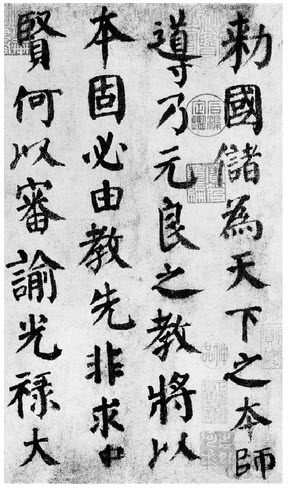 勅國儲為天下之本師
導乃元良之教將以
本固必由教先非求忠
賢何以審諭光祿大